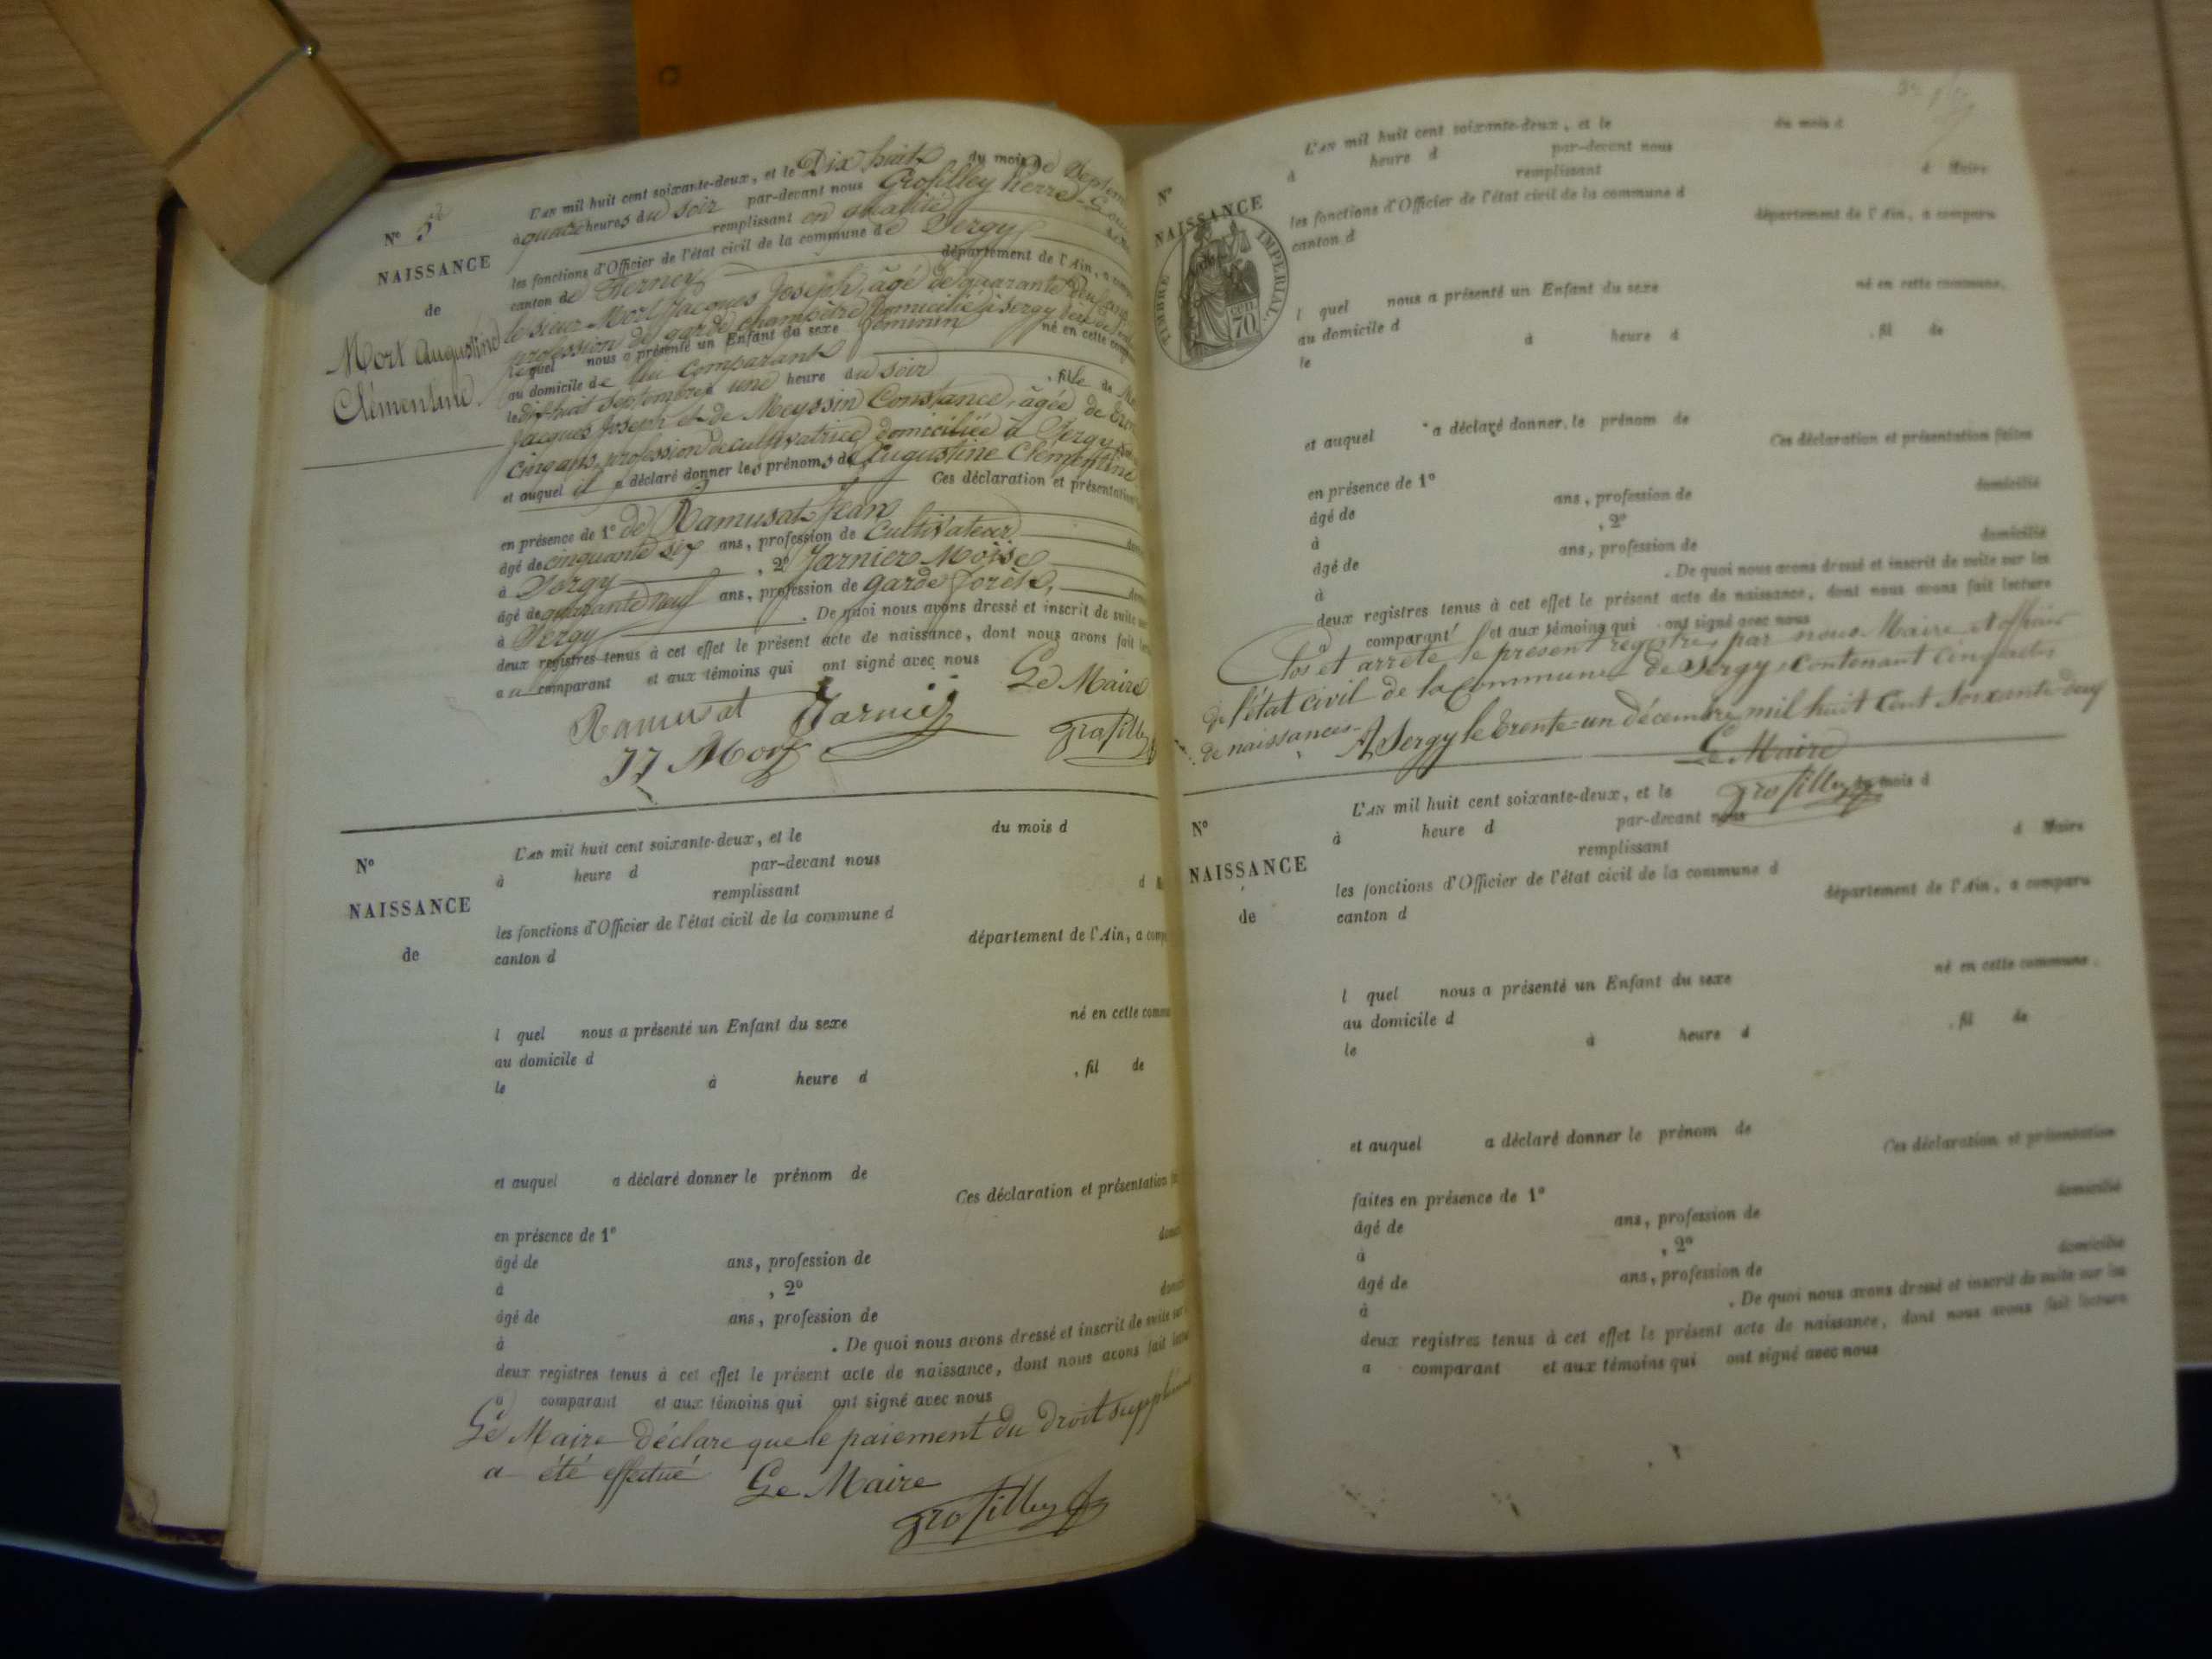 N° 5
NAISSANCE
de
Mort Augustine
Clémentine
L'AN mil huit cent soixante-deux, et le Dix huit du mois de Septem
à quatre heures du soir par-devant nous Grosfilley Pierre
remplissant en qualité
les fonctions d'Officier de l'état civil de la commune de Sergy
canton de Ferney département de l'Ain, a comp
le sieur Mort Jacques Joseph, âgé de quarante deux ans
profession de garde champêtre domicilié à Sergy
lequel nous a présenté un Enfant du sexe féminin né en cette comm
au domicile de lui comparant
le dix huit septembre à une heure du soir , fille de
Jacques Joseph et de Meyssin Constance, âgée de tren
cinq ans, profession de cultivatrice domiciliée à Sergy
et auquel il a déclaré donner les prénoms de Augustine Clémentine
Ces déclaration et présentation
en présence de 1° de Ramusat Jean
âgé de cinquante six ans, profession de Cultivateur
à Sergy , 2° Jarnier Moïse
âgé de quarante neuf ans, profession de garde forêts,
à Sergy . De quoi nous avons dressé et inscrit de suite
deux registres tenus à cet effet le présent acte de naissance, dont nous avons fait
au comparant et aux témoins qui ont signé avec nous
Le Maire
Ramusat Jarnier
JJ Mort Grosfilley
N°
NAISSANCE
de
L'AN mil huit cent soixante-deux, et le du mois d
à heure d par-devant nous
remplissant d
les fonctions d'Officier de l'état civil de la commune d
canton d département de l'Ain, a comp
l quel nous a présenté un Enfant du sexe né en cette comm
au domicile d
le à heure d , fil de
et auquel a déclaré donner le prénom de
Ces déclaration et présentation
en présence de 1°
âgé de ans, profession de
à , 2°
âgé de ans, profession de
à . De quoi nous avons dressé et inscrit de suite sur
deux registres tenus à cet effet le présent acte de naissance, dont nous avons fait
a comparant et aux témoins qui ont signé avec nous
Le Maire déclare que le paiement du droit supplém
a été effectué Le Maire
Grosfilley
N°
NAISSANCE
TIMBRE IMPERIAL.
CENT. 70
L'AN mil huit cent soixante-deux, et le du mois d
à heure d par-devant nous
remplissant d Maire
les fonctions d'Officier de l'état civil de la commune d
canton d département de l'Ain, a comparu
l quel nous a présenté un Enfant du sexe né en cette commune,
au domicile d
le à heure d , fil de
et auquel a déclaré donner le prénom de
Ces déclaration et présentation faites
en présence de 1°
âgé de ans, profession de domicilié
à , 2°
âgé de ans, profession de domicilié
à . De quoi nous avons dressé et inscrit de suite sur les
deux registres tenus à cet effet le présent acte de naissance, dont nous avons fait lecture
a comparant et aux témoins qui ont signé avec nous
Clos et arrêté le présent registre par nous Maire et officier
de l'état civil de la Commune de Sergy, contenant cinq actes
de naissances.
A Sergy le trente-un décembre mil huit cent soixante deux
Le Maire
Grosfilley
N°
NAISSANCE
de
L'AN mil huit cent soixante-deux, et le du mois d
à heure d par-devant nous
remplissant d Maire
les fonctions d'Officier de l'état civil de la commune d
canton d département de l'Ain, a comparu
l quel nous a présenté un Enfant du sexe né en cette commune,
au domicile d
le à heure d , fil de
et auquel a déclaré donner le prénom de
Ces déclaration et présentation
faites en présence de 1°
âgé de ans, profession de domicilié
à , 2°
âgé de ans, profession de domicilié
à . De quoi nous avons dressé et inscrit de suite sur les
deux registres tenus à cet effet le présent acte de naissance, dont nous avons fait lecture
a comparant et aux témoins qui ont signé avec nous